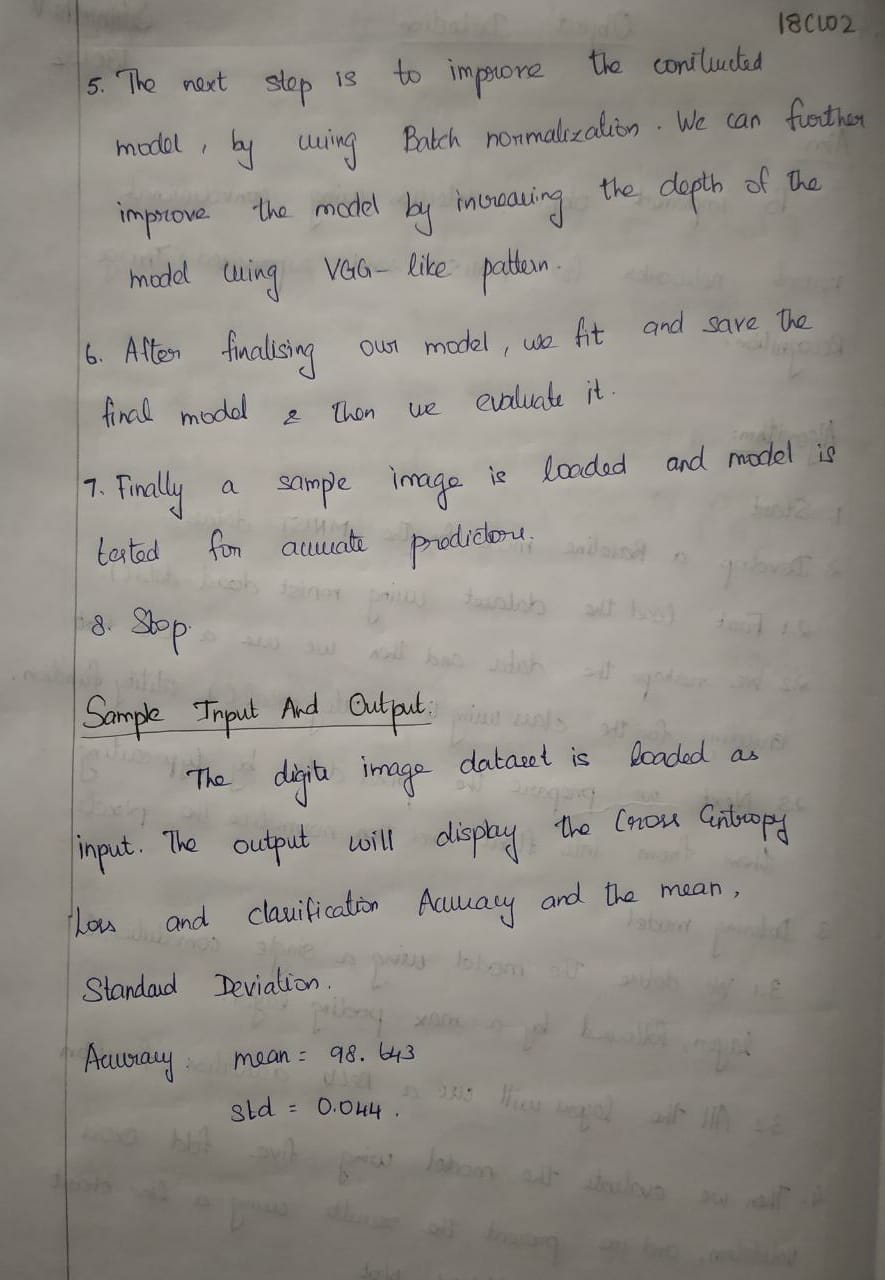 18CW02
5. The next step is to improve the constructed
model, by using Batch normalization. We can further
improve the model by increasing the depth of the
model using VGG-like pattern.
6. After finalising our model, we fit and save the
final model & then we evaluate it.
7. Finally a sample image is loaded and model is
tested for accurate predictions.
8. Stop.
Sample Input And Output:
The digits image dataset is loaded as
input. The output will display the Cross Entropy
Loss and classification Accuracy and the mean,
Standard Deviation.
Accuracy: mean = 98.643
std = 0.044.